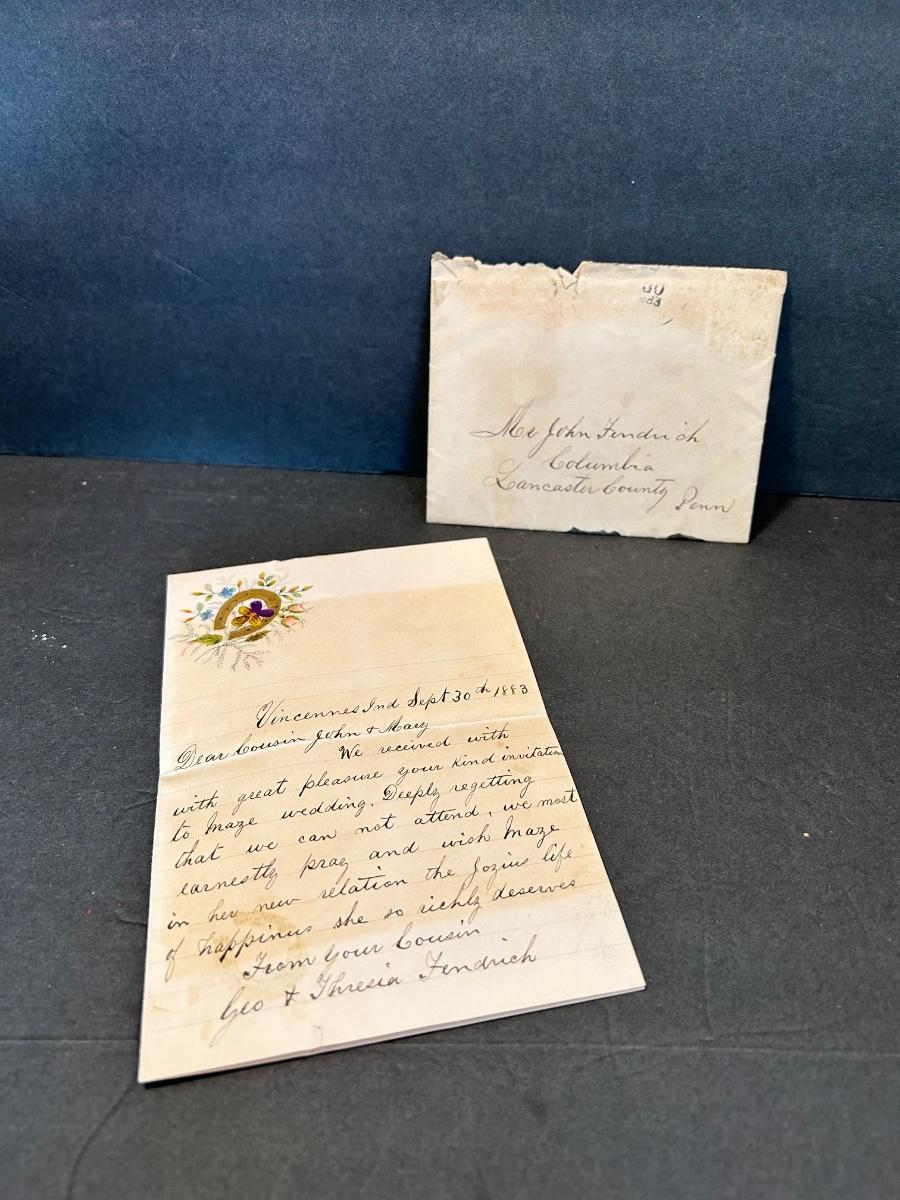 30
83
Mr John Fendrich
Columbia
Lancaster County
Penn
Vincennes Ind Sept 30th 1883
Dear Cousin John & Mary
We received with
with great pleasure your kind invitation
to Maze wedding. Deeply regetting
that we can not attend, we most
earnestly pray and wish Maze
in her new relation the Jozius life
of happinus she so richly deserves
From Your Cousin
Geo & Thresia Fendrich